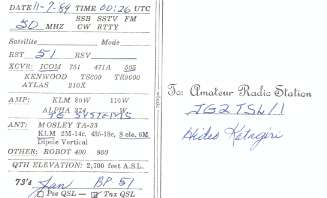 DATE 11-7-89 TIME 00:26 UTC
50 MHZ SSB SSTV FM
CW RTTY
Satellite Mode
RST 51 RSV
XCVR: ICOM 251 471A 505
KENWOOD TS600 TR9000
ATLAS 210X
AMP: KLM 80W 110W
ALPHA 374
TE SYSTEMS
ANT: MOSLEY TA-33
KLM 2M-14c, 435-18c, 8 ele. 6M
Dipole Vertical
OTHER: ROBOT 400 800
QTH ELEVATION: 2,700 feet A.S.L.
73's Jan BP-51
Pse QSL — Tnx QSL
To: Amateur Radio Station
JG2TSL/1
Hideo Katagiri